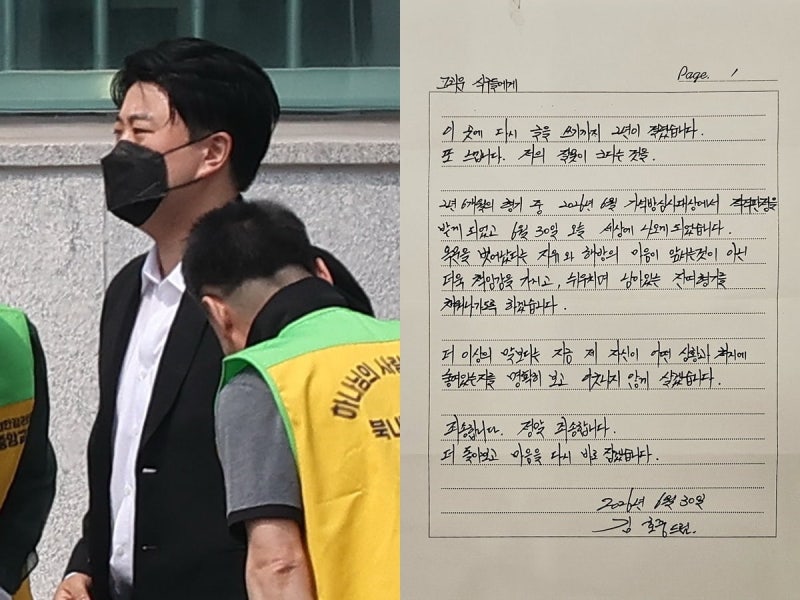 하나님의 사랑
북내
Page. 1
그리운 식구들에게
이 곳에 다시 글을 쓰기까지 2년이 걸렸습니다.
또 느낍니다. 저의 잘못이 크다는 것을.
2년 6개월의 형기 중 2026년 6월 가석방심사대상에서 적격판정을
받게 되었고 6월 30일 오늘 세상에 나오게 되었습니다.
옥중을 벗어났다는 자유와 해방의 마음이 앞서는것이 아닌
더욱 책임감을 가지고, 뉘우치며 남아있는 잔여형기를
채워나가도록 하겠습니다.
더 이상의 말보다는 지금 제 자신이 어떤 상황과 위치에
놓여있는지를 명확히 보고 어긋나지 않게 살겠습니다.
죄송합니다. 정말 죄송합니다.
더 돌아보고 마음을 다시 바로 잡겠습니다.
2026년 6월 30일
김 호중 드림.